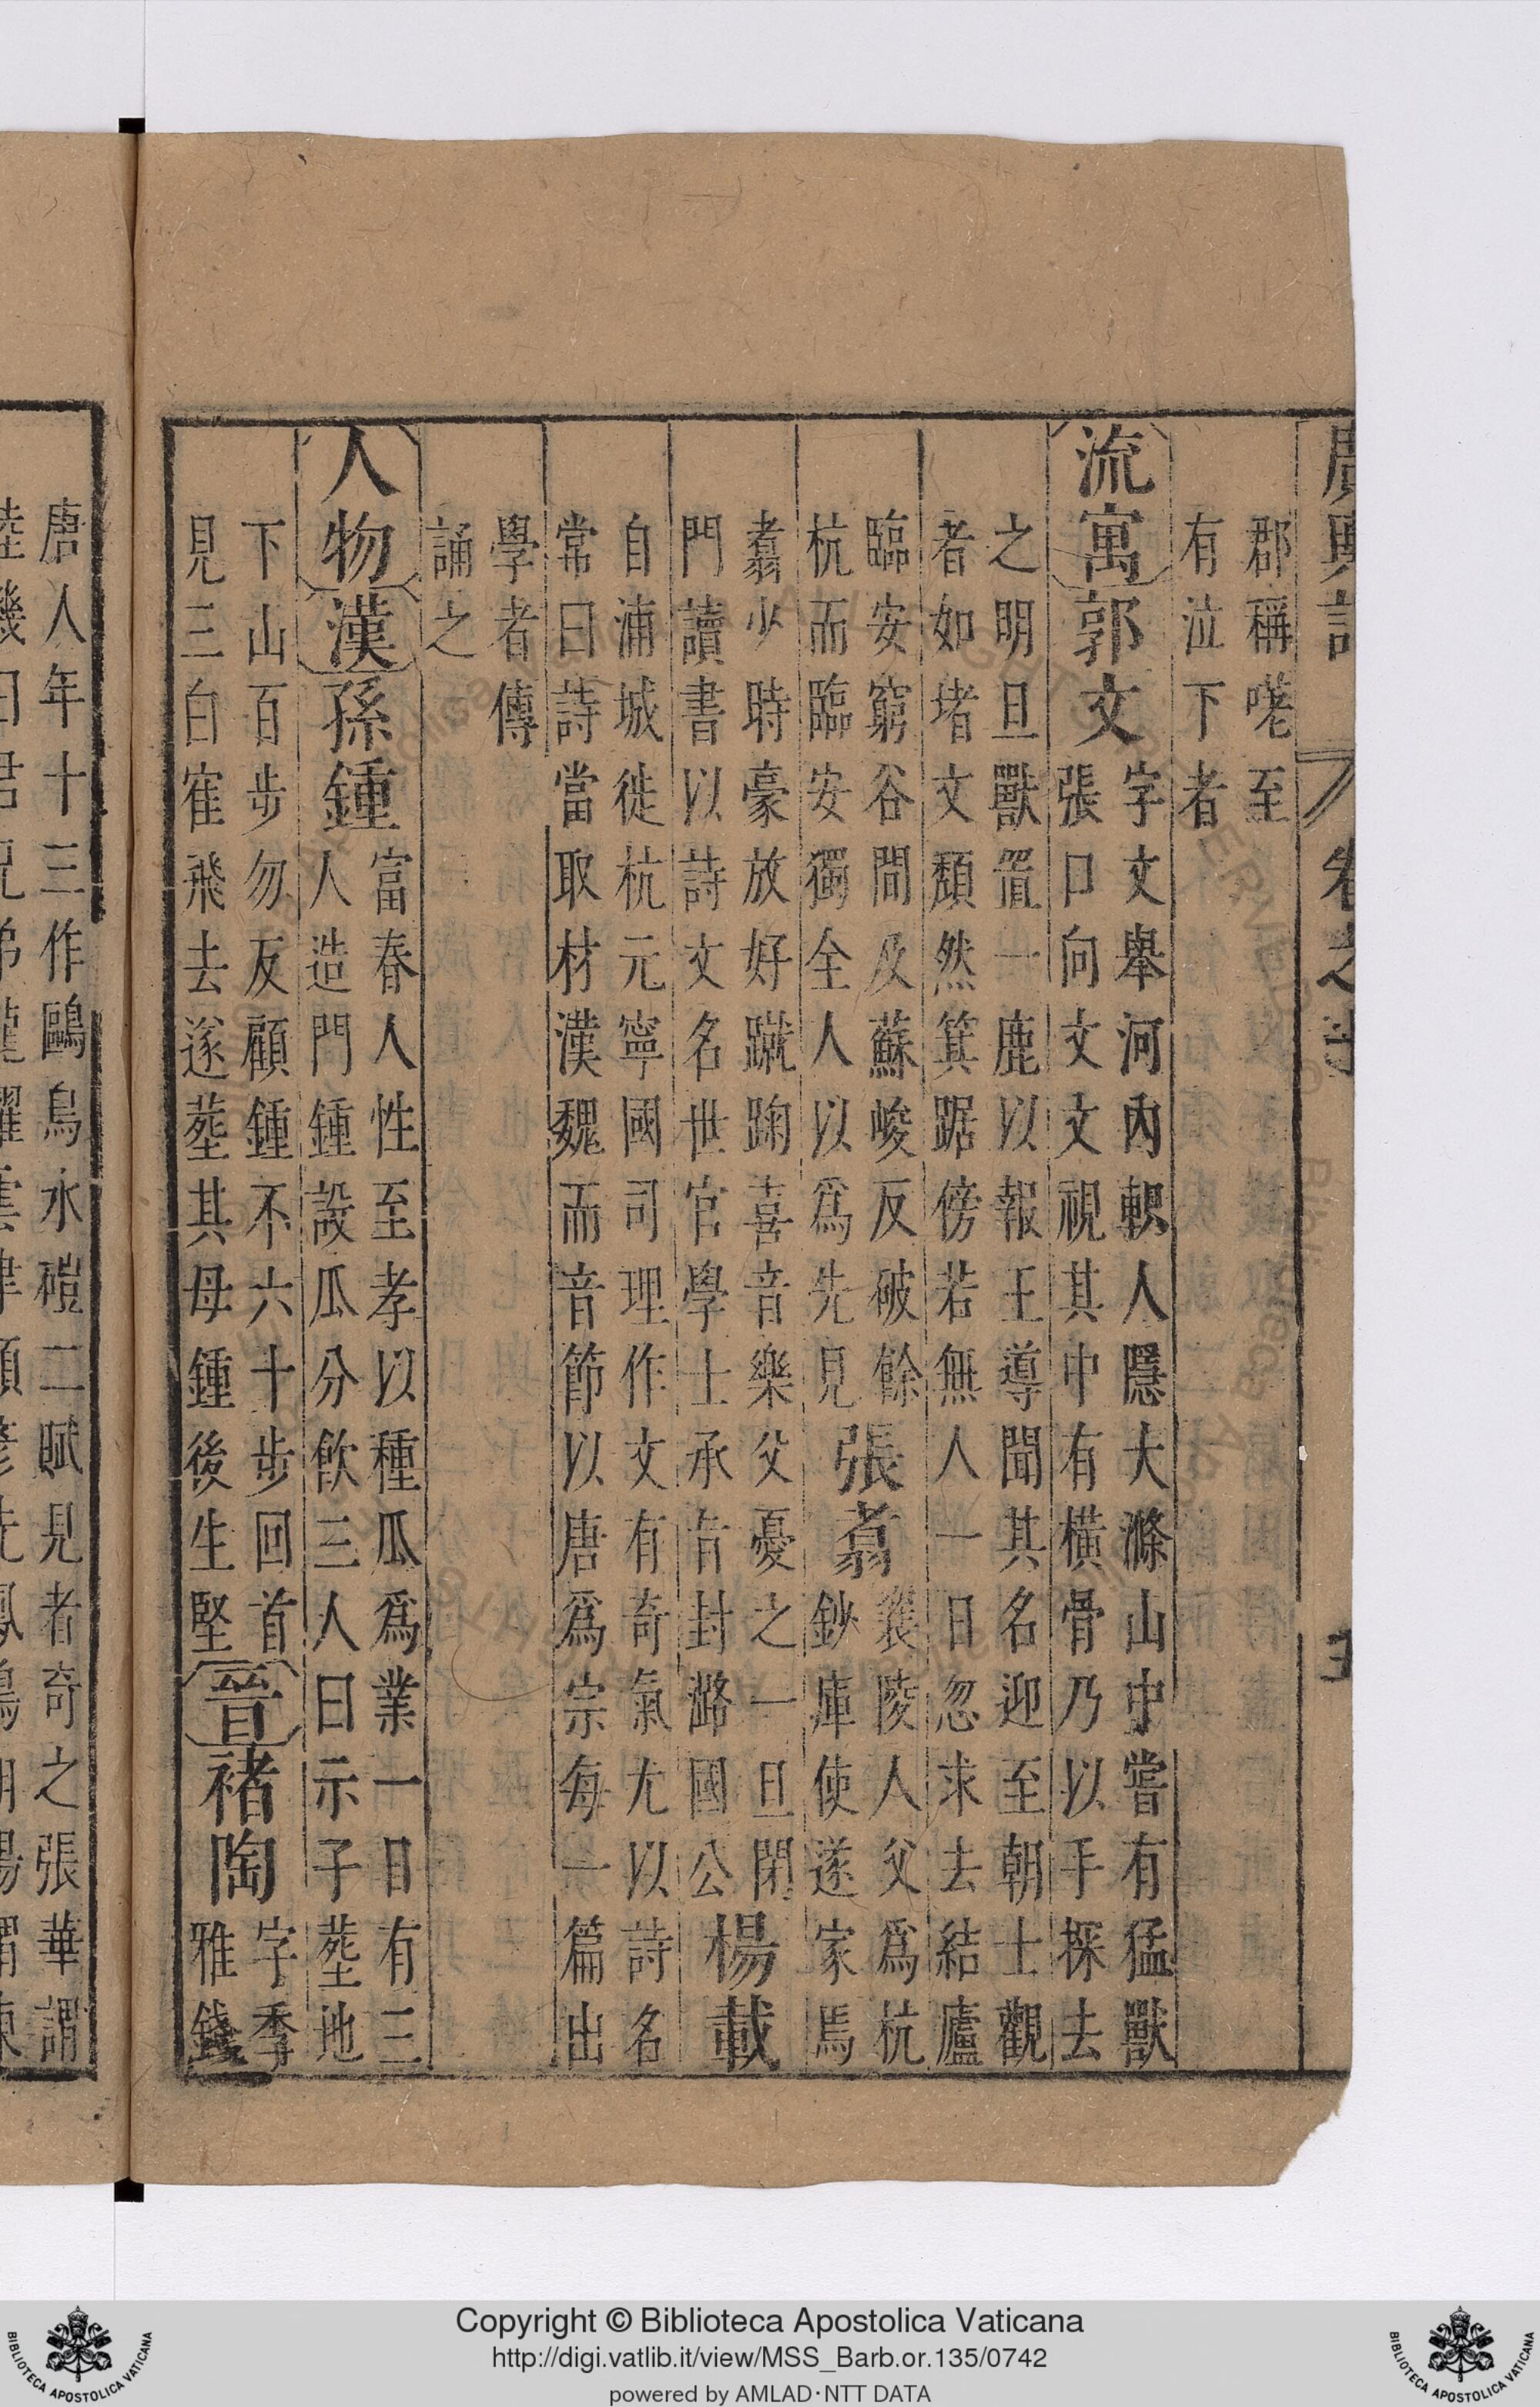 廣輿記 卷之
郡稱嗟至
有泣下者
流寓郭文
字文舉河內軹人隱大滌山中嘗有猛獸
張口向文文視其中有橫骨乃以手探去
之明旦獸置一鹿以報王導聞其名迎至朝士觀
者如堵文頹然箕踞傍若無人一日忽求去結廬
臨安窮谷間及蘇峻反破餘
杭而臨安獨全人以爲先見
張翥
襄陵人父爲杭
鈔庫使遂家焉
翥少時豪放好蹴踘喜音樂父憂之一旦閉
門讀書以詩文名世官學士承旨封潞國公
楊載
自浦城徙杭元寧國司理作文有奇氣尤以詩名
常曰詩當取材漢魏而音節以唐爲宗每一篇出
學者傳
誦之
人物漢孫鍾
富春人性至孝以種瓜爲業一日有三
人造門鍾設瓜分飲三人曰示子塟地
下山百步勿反顧鍾不六十步回首
見三白隺飛去遂塟其母鍾後生堅
晉褚陶
字季
雅錢
唐人年十三作鷗鳥水磑二賦見者奇之張華謂
Copyright © Biblioteca Apostolica Vaticana
http://digi.vatlib.it/view/MSS_Barb.or.135/0742
powered by AMLAD·NTT DATA
BIBLIOTECA APOSTOLICA VATICANA
BIBLIOTECA APOSTOLICA VATICANA